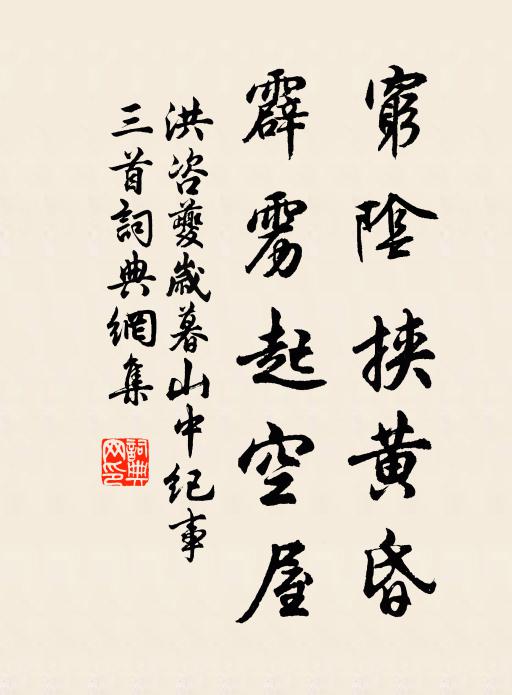 窮陰挾黄昏
霹雳起空屋
洪咨夔嵗暮山中纪事
三首詞典網集
詞典
网印